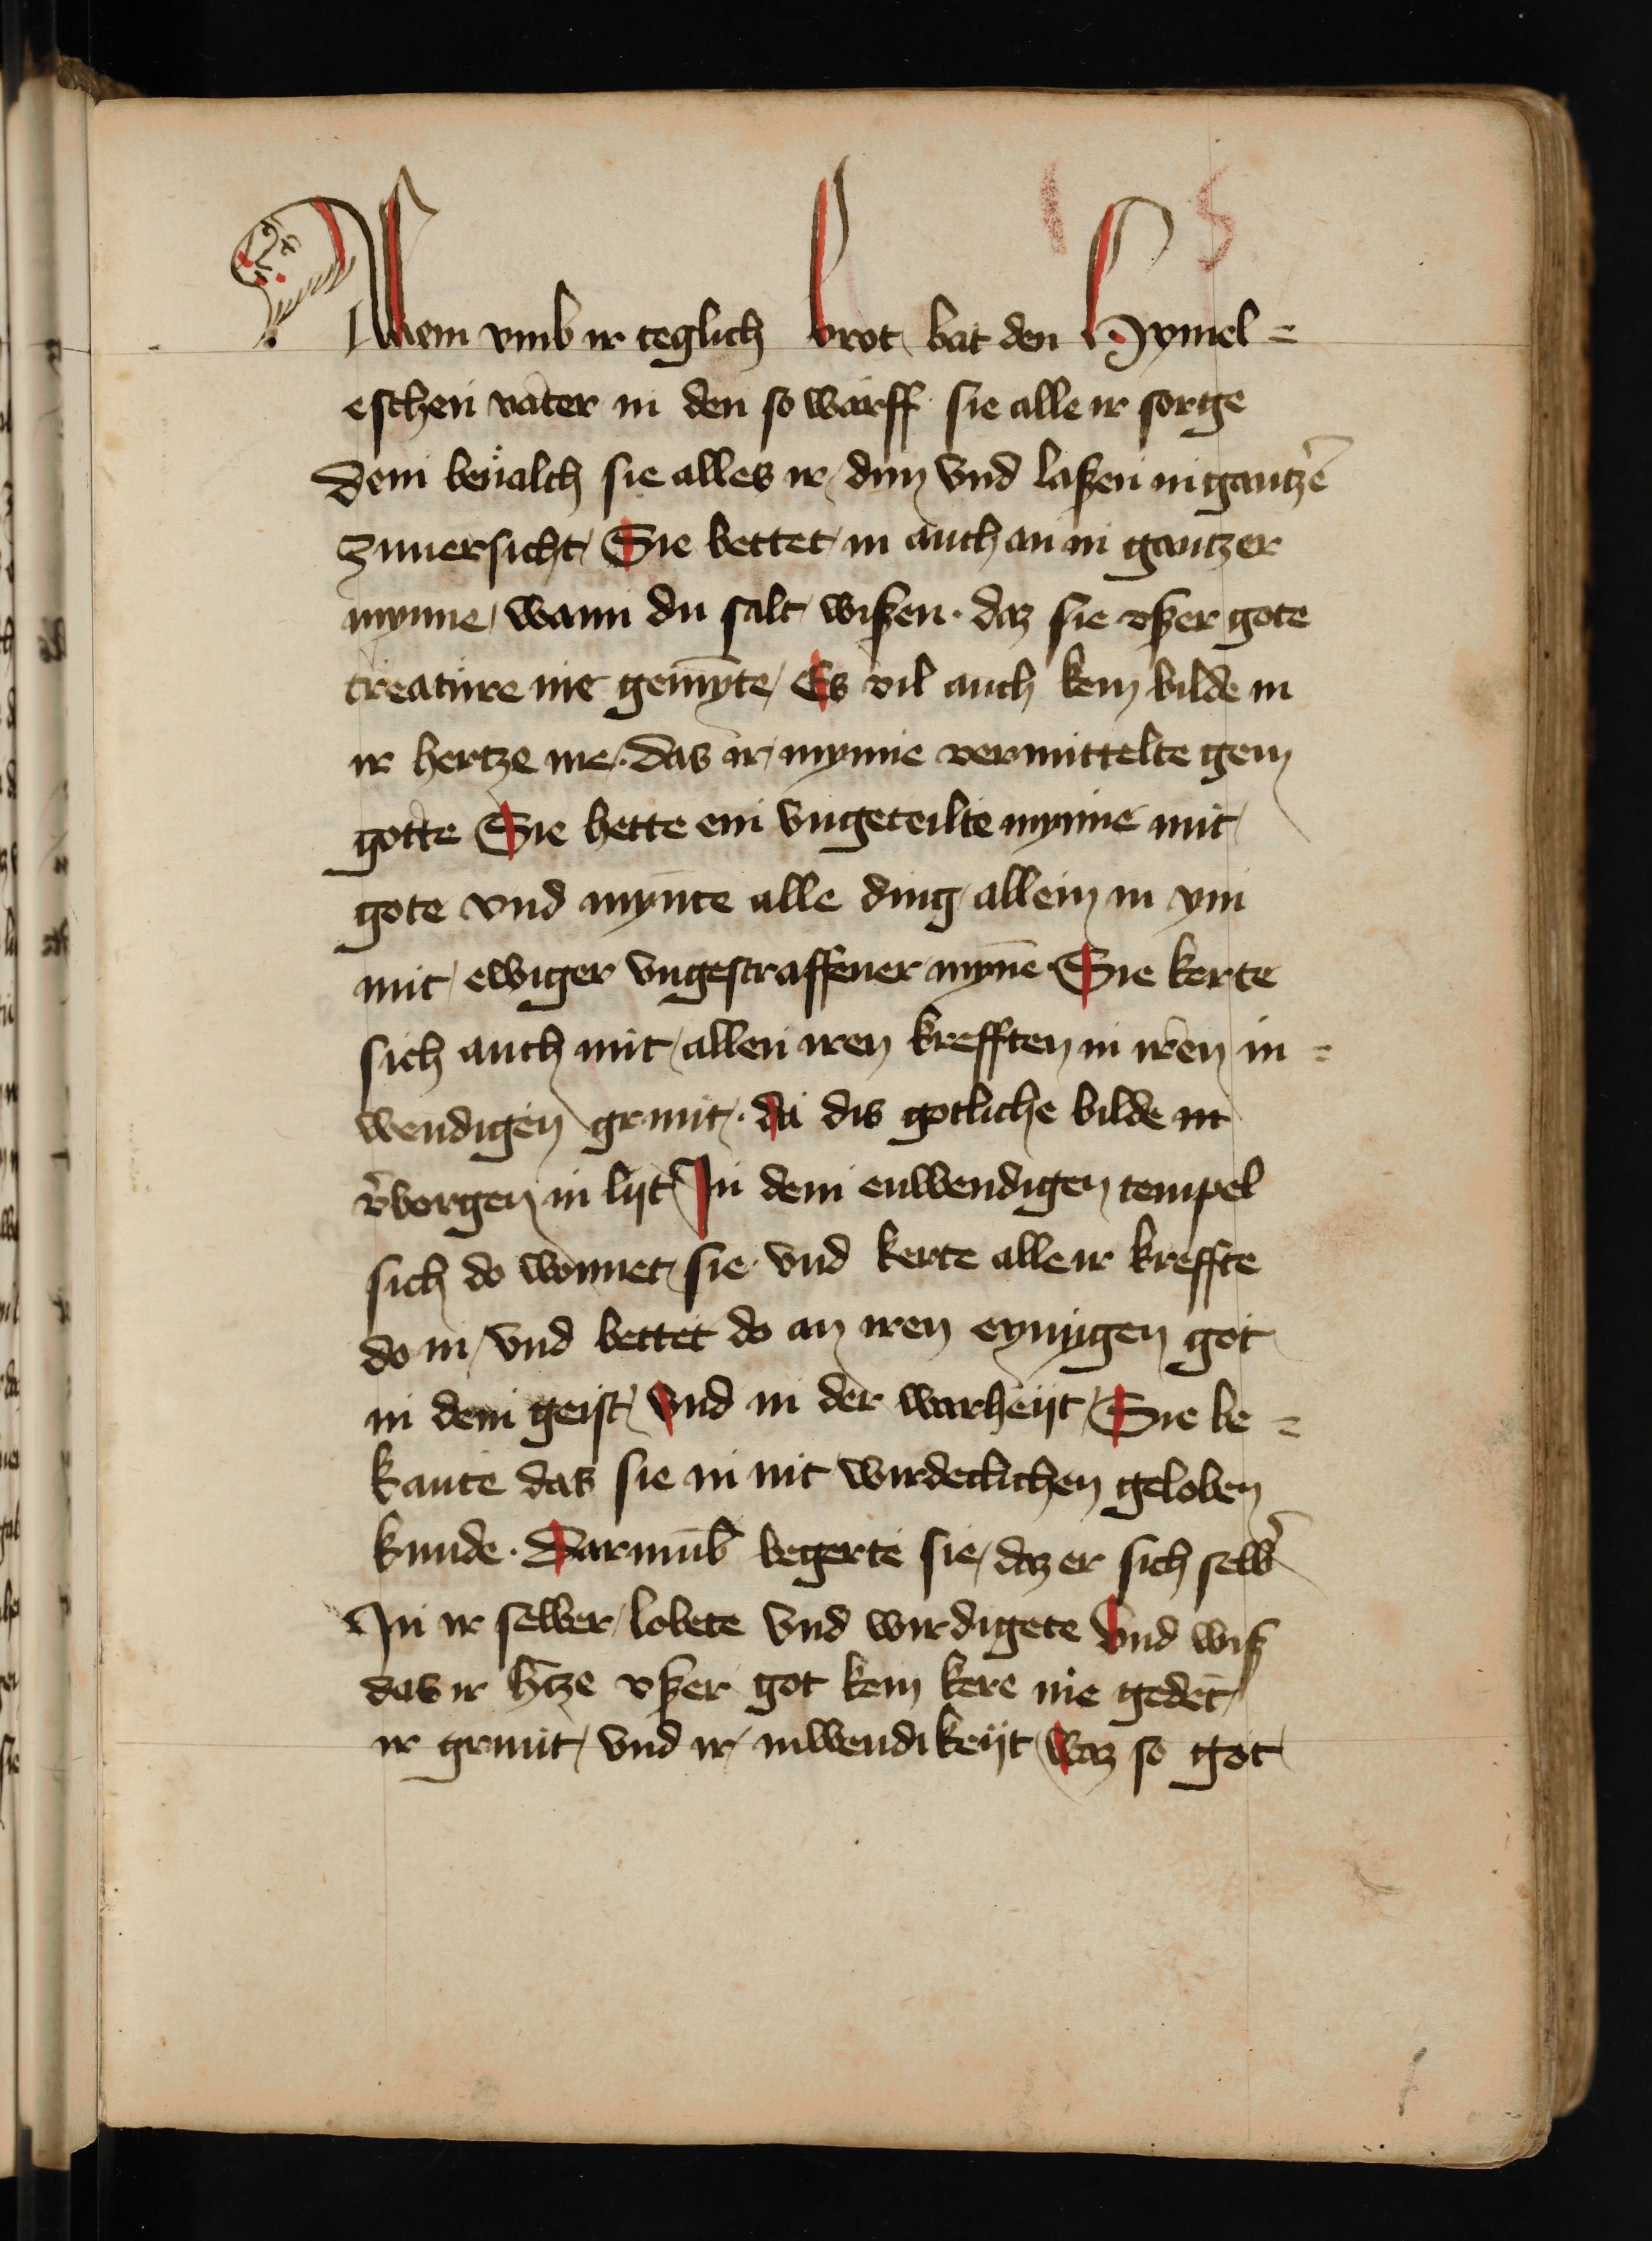 15
Allein vmb ir teglich brot bat den Hymel=
eschen vater in den so warff sie alle ir sorge
Dem beualch sie alles ir dun vnd laßen in gantzē
zuuersicht Sie bettet in auch an in gantzer
mynne wann du salt wißen · daz sie vßer gote
creature nie gemÿte Es vil auch kein bilde in
ir hertze nie · das ir mynne vermittelte gein
gotte Sie hette ein vngeteilte mynne mit
gote vnd mynte alle ding allein in ym
mit ewiger vngestraffener mynē Sie kerte
sich auch mit allen iren krefften in iren in=
wendigen grunt · da dis gotliche bilde in
v̾borgen in lijt In dem enwendigen tempel
sich do wonnet sie vnd kerte alle ir kreffte
do in vnd bettet do an iren eynigen got
in dem geist vnd in der warheijt Sie be=
kante das sie in nit wirdeclichen geloben
kunde · Darumb begerte sie daz er sich selb̾
In ir selber lobete vnd wirdigete vnd wiß
das ir h̄tze vßer got kein kere nie gedet
ir grunt vnd ir inwendikeijt waz so got